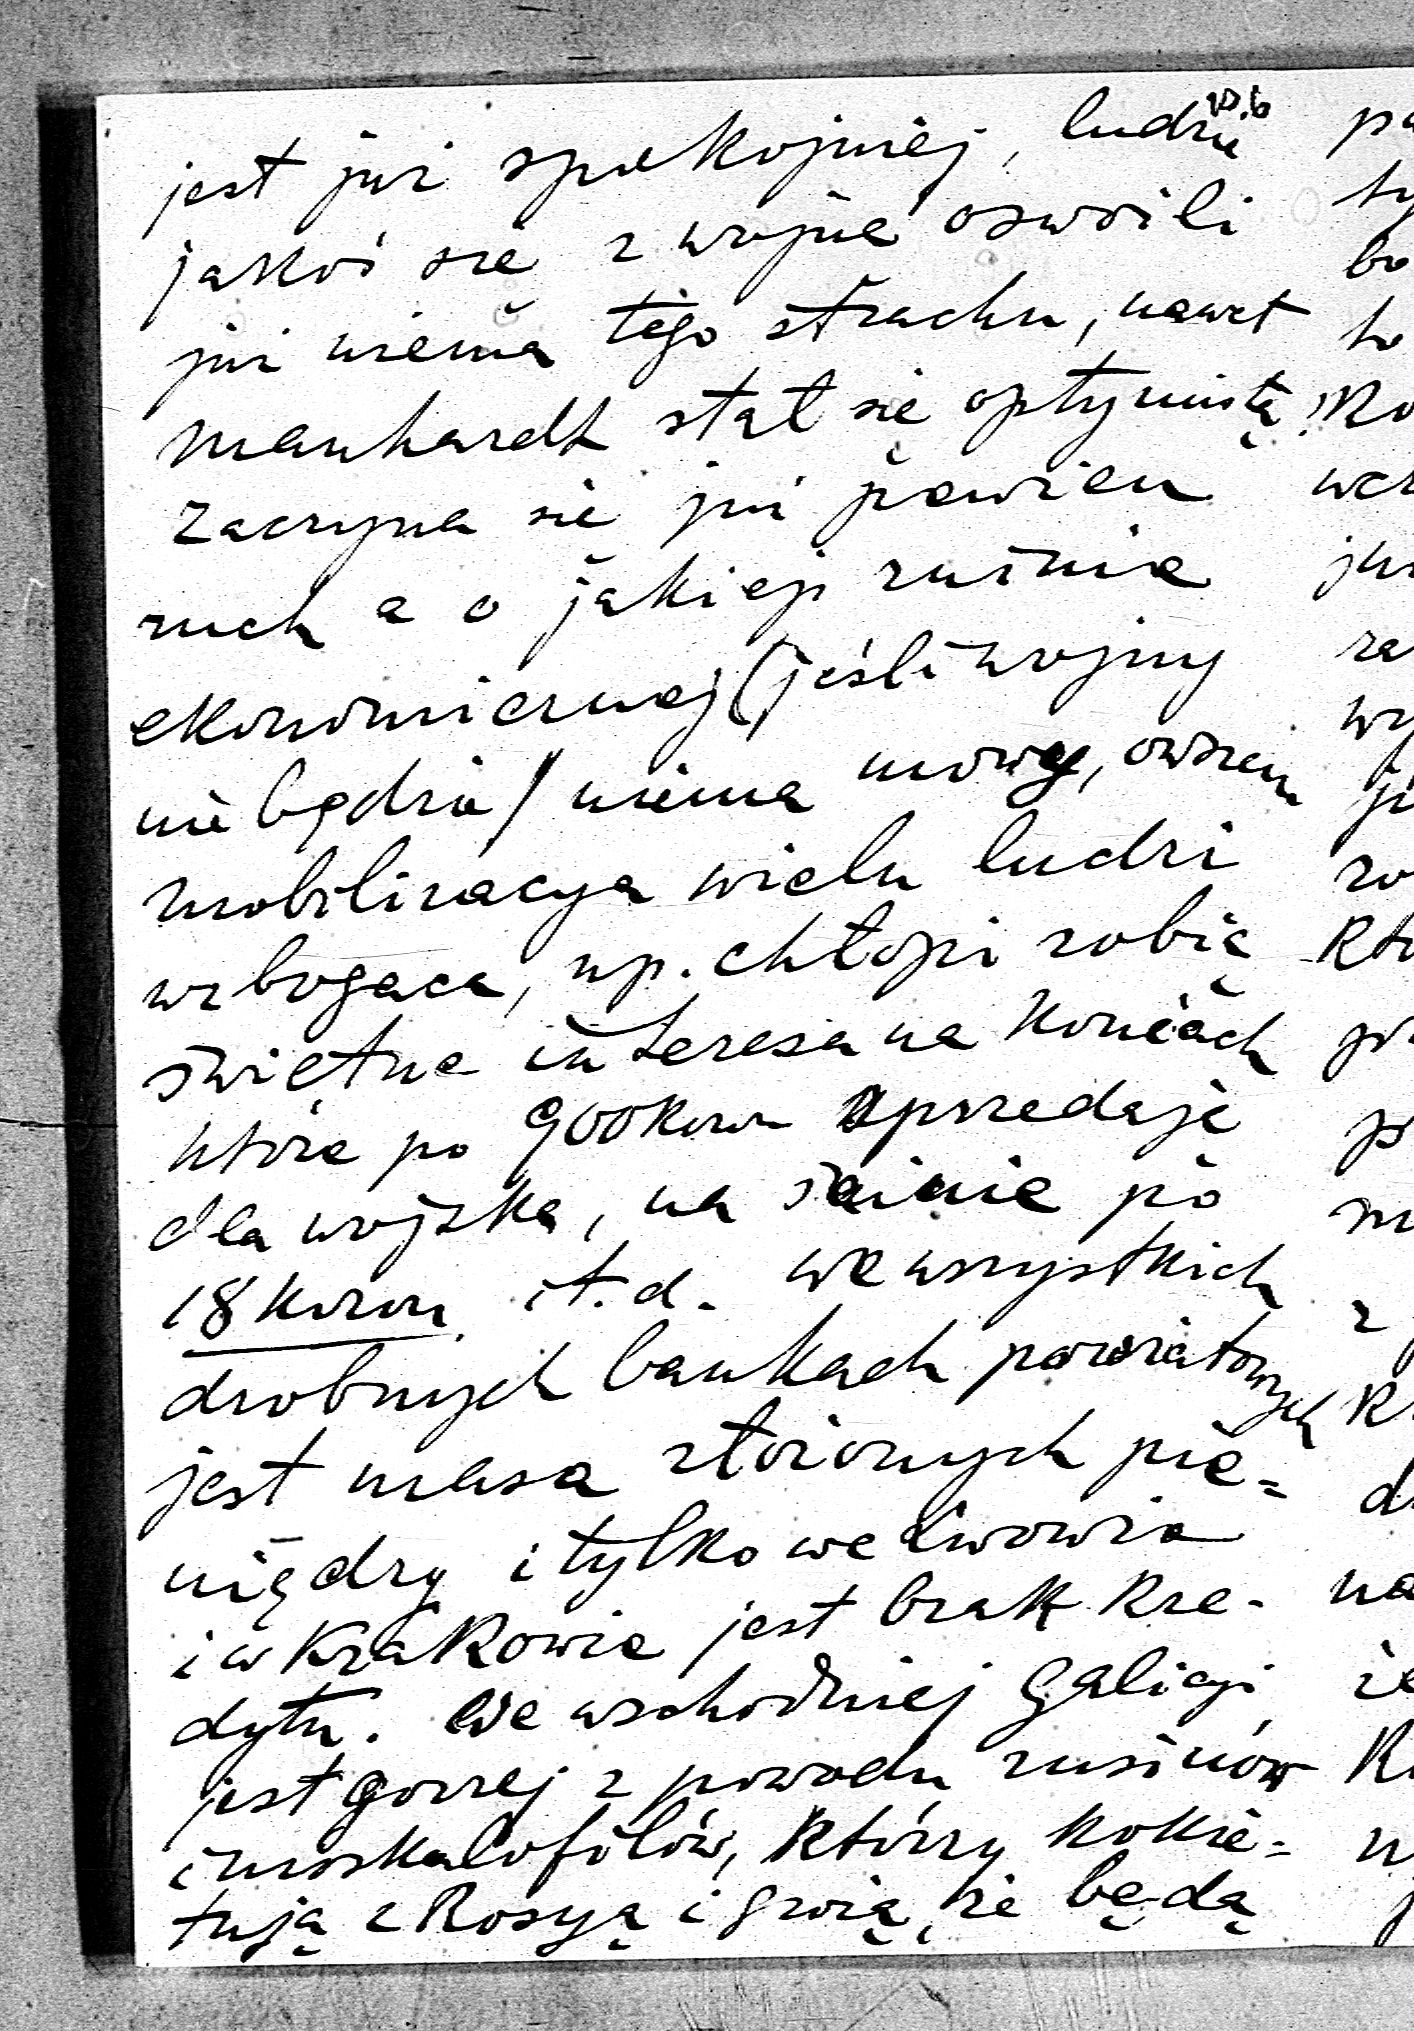 10.b
jest już spokojniej, ludzie
jakoś się z wojną oswoili
już niema tego strachu, nawet
Manhardt stał się optymistą.
Zaczyna się już pewien
ruch a o jakiejś ruinie
ekonomicznej (jeśli wojny
nie będzie) niema mowy, owszem
mobilizacya wielu ludzi
wzbogaca, np. chłopi robią
świetne interesa na koniach
które po 900 koron sprzedają
dla wojska, na sianie po
18 koron i t. d. we wszystkich
drobnych bankach powiatowych
jest masa złożonych pie=
niędzy i tylko we Lwowie
i w Krakowie jest brak kre-
dytu. We wschodniej Galicyi
jest gorzej z powodu rusinów
i moskalofilów, którzy kokie=
tują z Rosyą i grożą, że będą